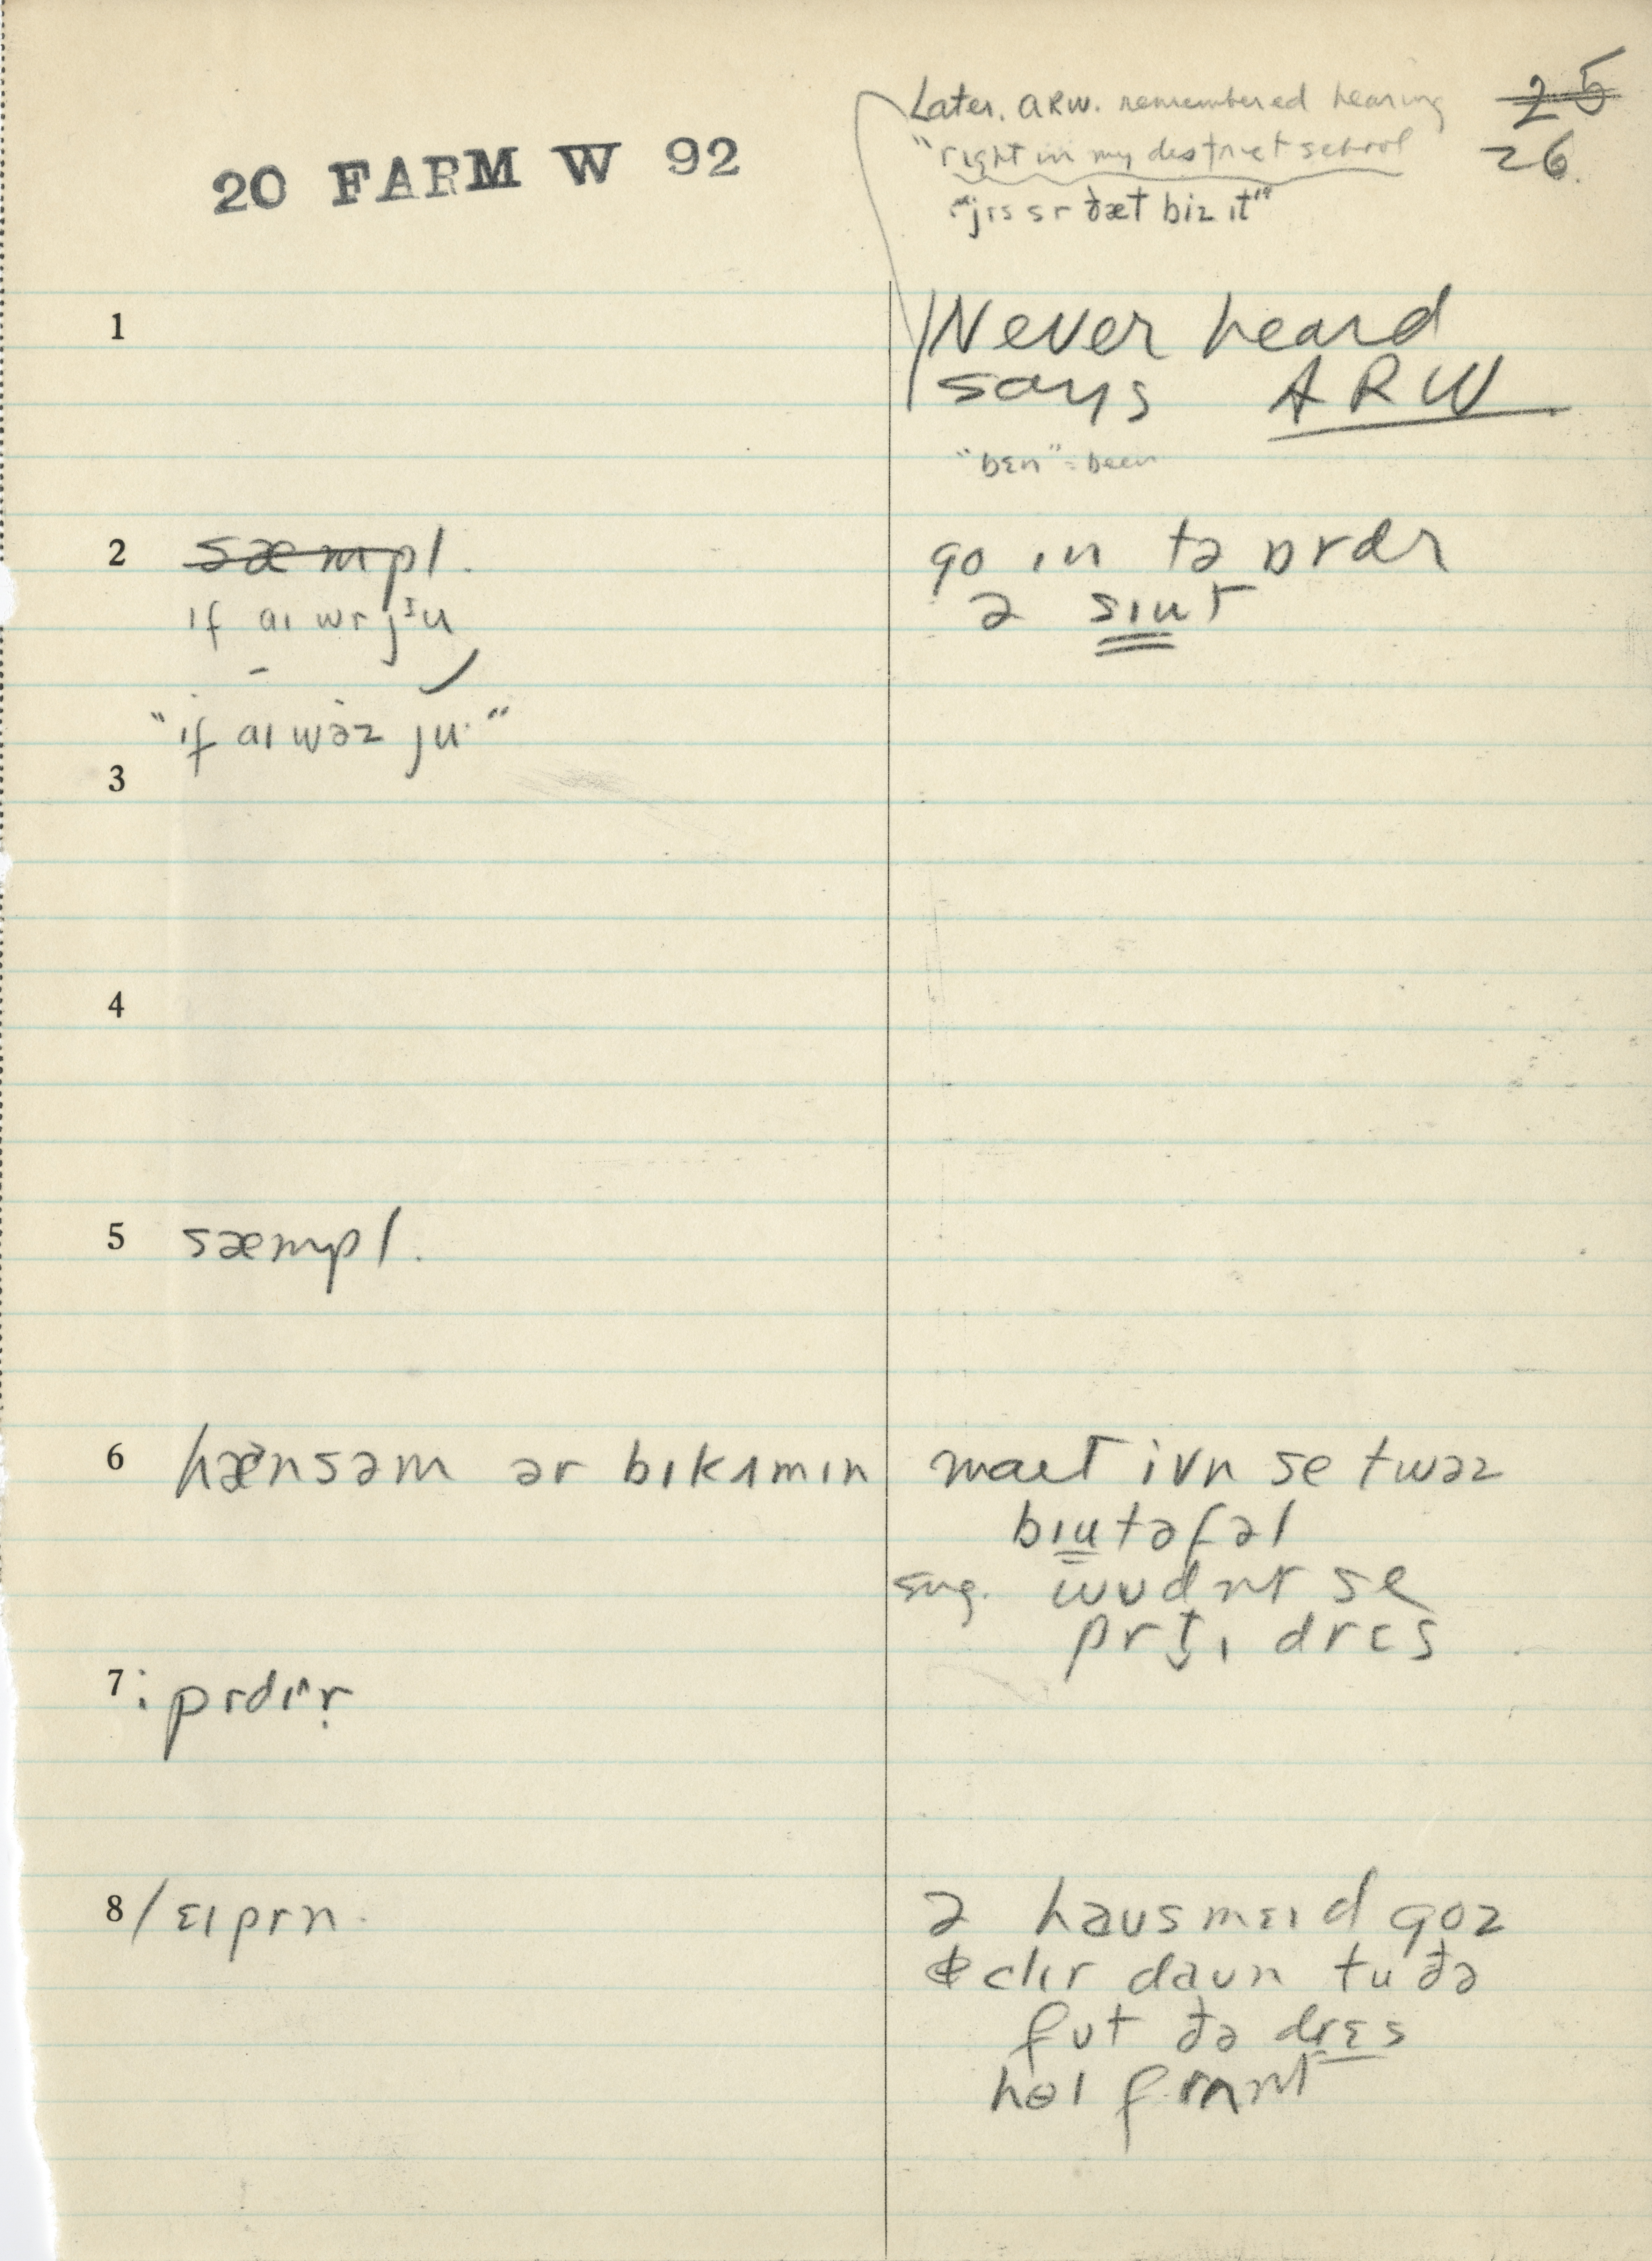 Later, ARW. remembered hearing
"right in my destrict school
"jɪs sr ðæt biz ɪt"
25
26.
20 FARM W 92
1
Never heard
says ARW
"bɛn" = been
2 sæmpl.
if aɪ wr jᶦu
"if aɪ wəz ju"
go ɪn tə ɒrdr
ə sɪut
3
4
5 sæmpl.
6 hænsəm ər bɪkʌmɪn
maɪt ivn se twəz
bɪutəfəl
sug. wʊdnt se
prt̬ɪ drɛs
7
8 /ɛɪprn.
ə haʊsmɛɪd goz
clɪr daʊn tu ðə
fʊt ðə drɛs
hol frʌnt